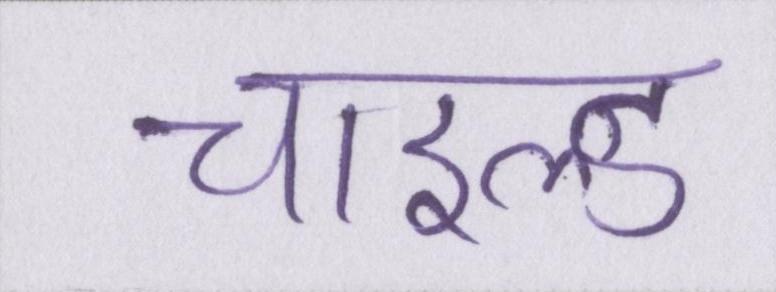 चाइल्ड